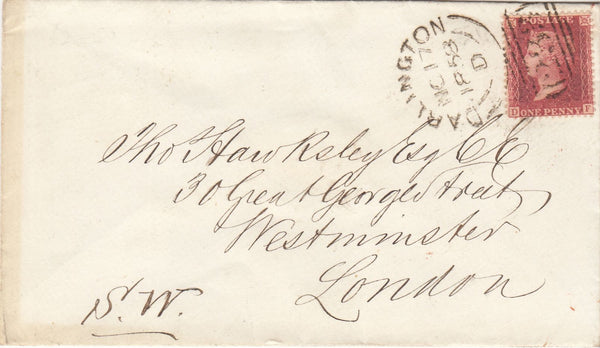 POSTAGE
ONE PENNY
DARLINGTON
17
1858
D
Tho^s Hawksley Esq C.E.
30 Great George Street
Westminster
London
S.W.